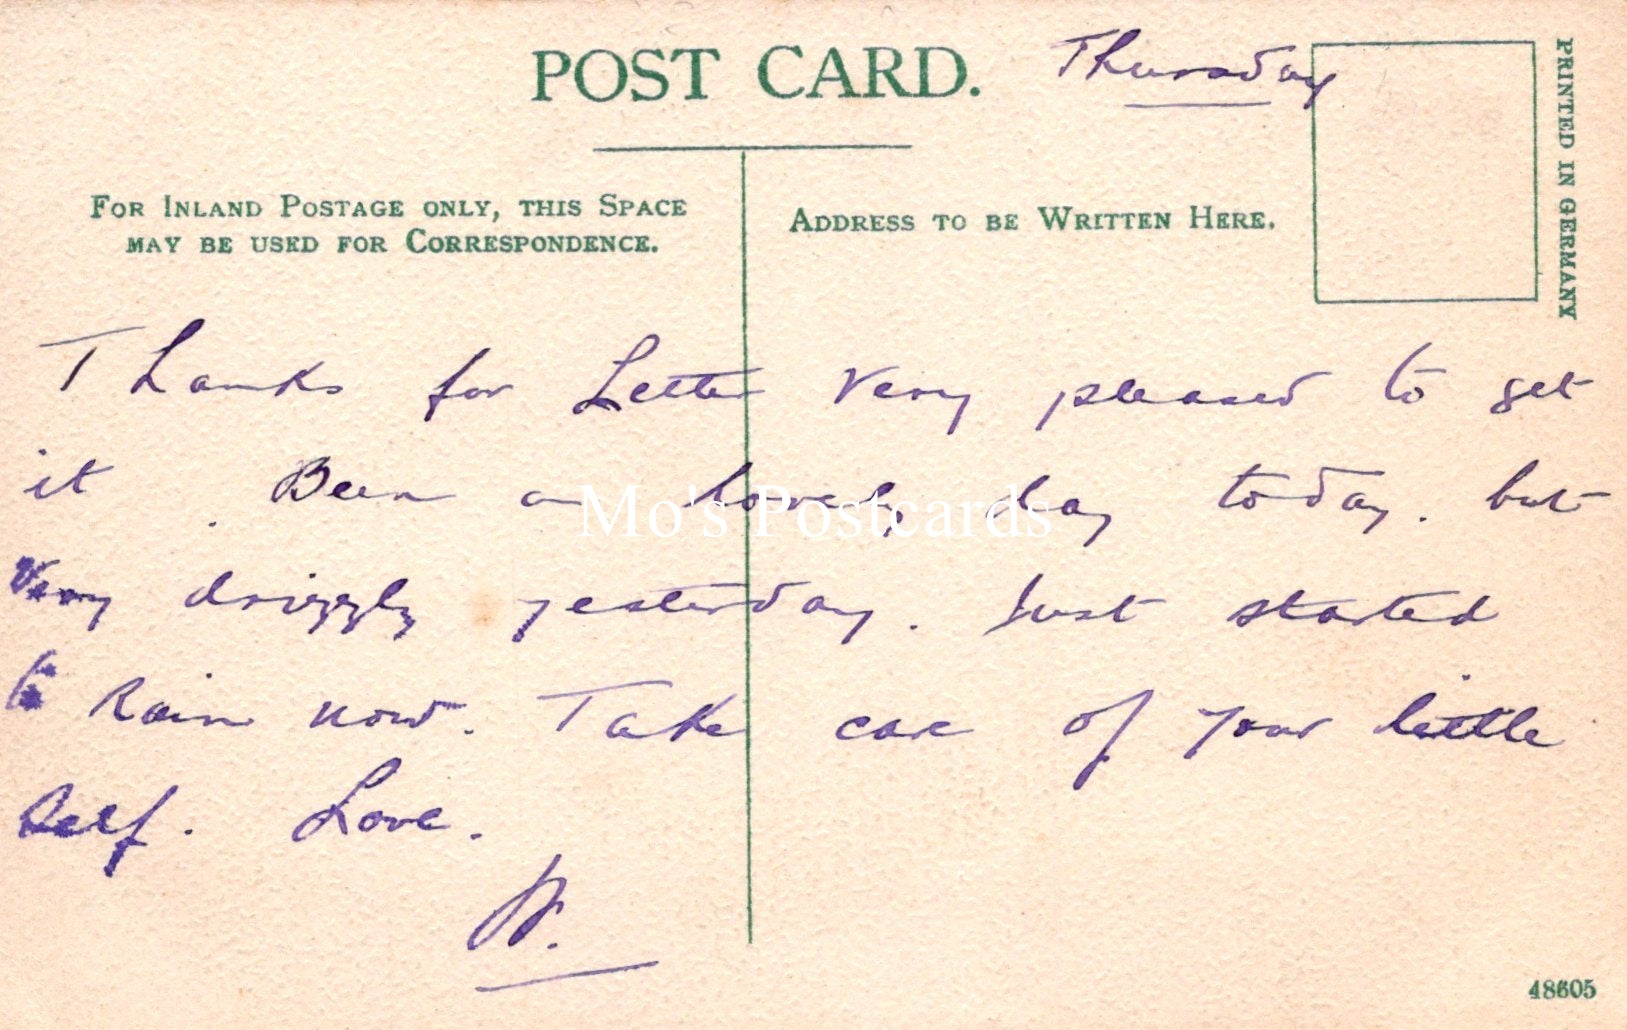 POST CARD.
Thursday
PRINTED IN GERMANY
FOR INLAND POSTAGE ONLY, THIS SPACE
MAY BE USED FOR CORRESPONDENCE.
ADDRESS TO BE WRITTEN HERE.
Thanks for Letter Very pleased to get
it. Been a lovely day today. but
Very drizzly yesterday. Just started
to Rain now. Take care of your little
Self. Love.
W.
Mo's Postcards
48605